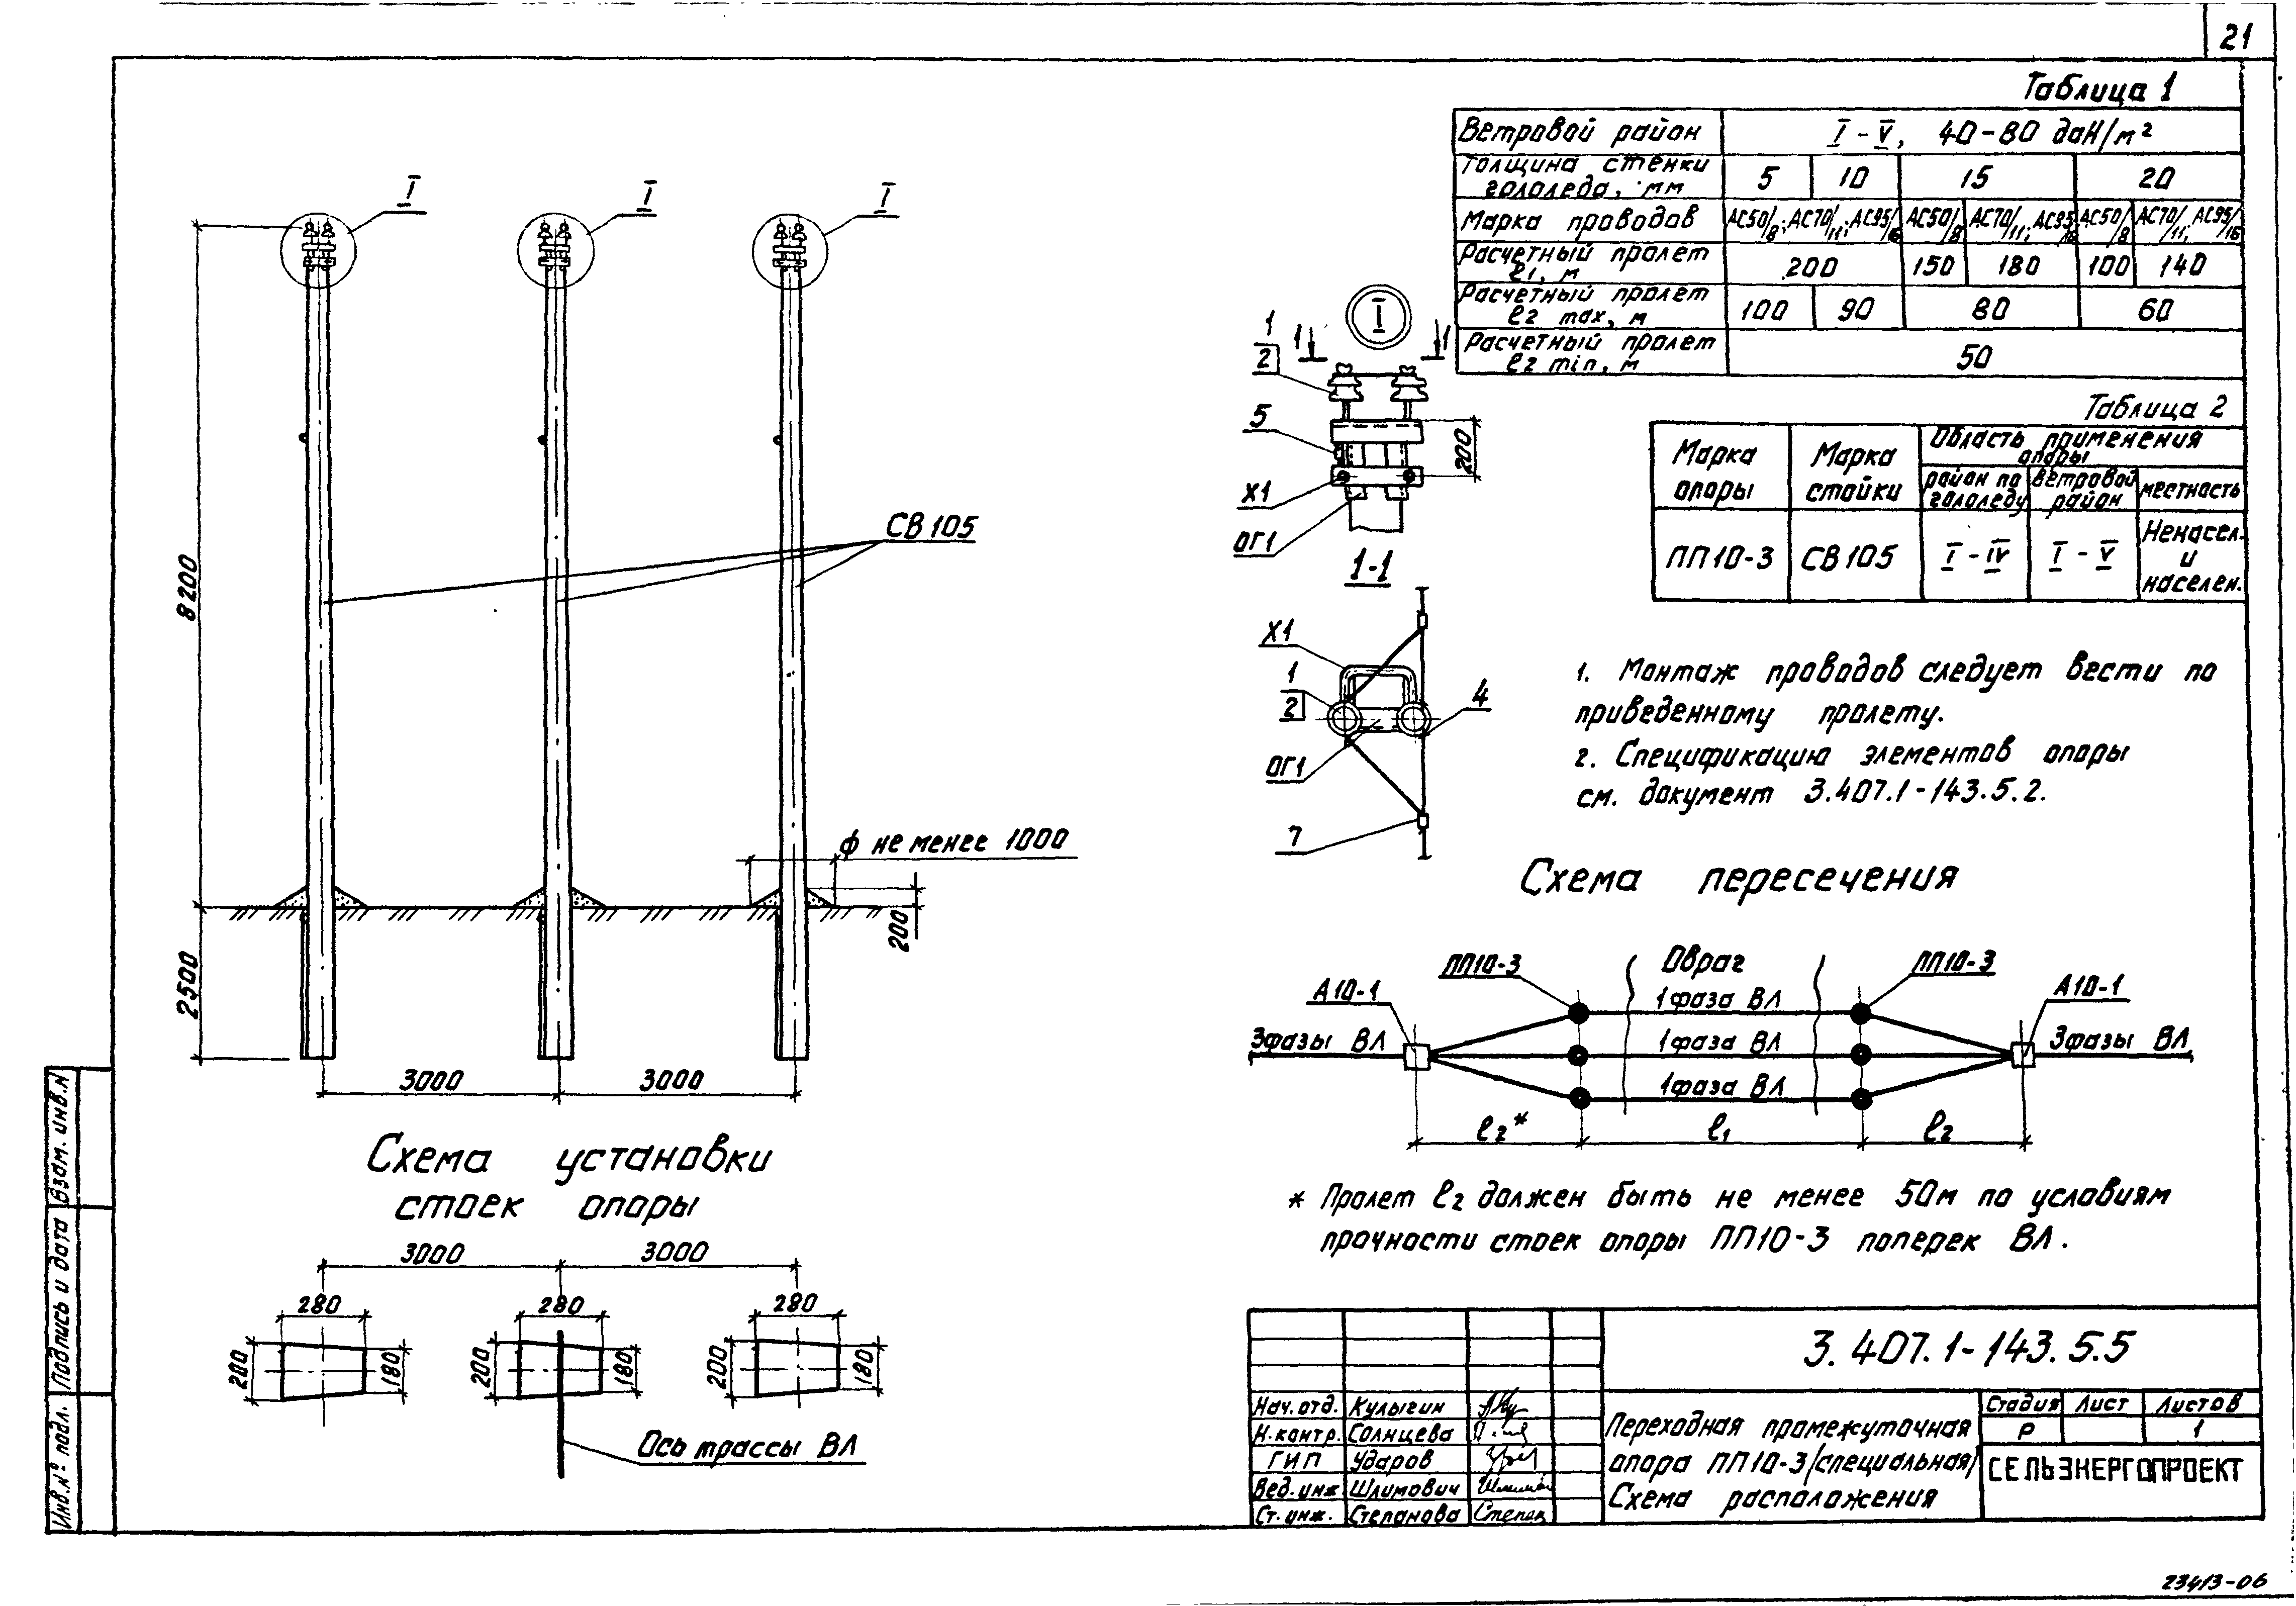 21
Таблица 1
Ветровой район I - V, 40-80 даН/м²
Толщина стенки гололеда, мм 5 10 15 20
Марка проводов АС50/8; АС70/11; АС95/16 АС50/8 АС70/11; АС95/16 АС50/8 АС70/11; АС95/16
Расчетный пролет ℓ1, м 200 150 180 100 140
Расчетный пролет ℓ2 max, м 100 90 80 60
Расчетный пролет ℓ2 min, м 50
Таблица 2
Марка опоры Марка стойки Область применения опоры
район по гололеду ветровой район местность
ПП10-3 СВ105 I - IV I - V Ненасел. и населен.
I
I
I
8200
2500
СВ105
ф не менее 1000
200
3000 3000
I
1 1
1
2
5
200
Х1
ОГ1
1-1
Х1
1
2
4
ОГ1
7
1. Монтаж проводов следует вести по
приведенному пролету.
2. Спецификацию элементов опоры
см. документ 3.407.1-143.5.2.
Схема пересечения
ПП10-3 Овраг ПП10-3
А10-1 1 фаза ВЛ А10-1
3фазы ВЛ 1 фаза ВЛ 3фазы ВЛ
1 фаза ВЛ
ℓ2* ℓ1 ℓ2
* Пролет ℓ2 должен быть не менее 50м по условиям
прочности стоек опоры ПП10-3 поперек ВЛ.
Схема установки
стоек опоры
3000 3000
280 280 280
200 180 200 180 200 180
Ось трассы ВЛ
Взам. инв.N
Подпись и дата
Инв.N° подл.
3.407.1-143.5.5
Нач. отд. Кулыгин
Н.контр. Солнцева
ГИП Ударов
Вед. инж Шлимович
Ст. инж. Степанова
Переходная промежуточная
опора ПП10-3/специальная/
Схема расположения
Стадия Лист Листов
Р 1
СЕЛЬЭНЕРГОПРОЕКТ
23413-06